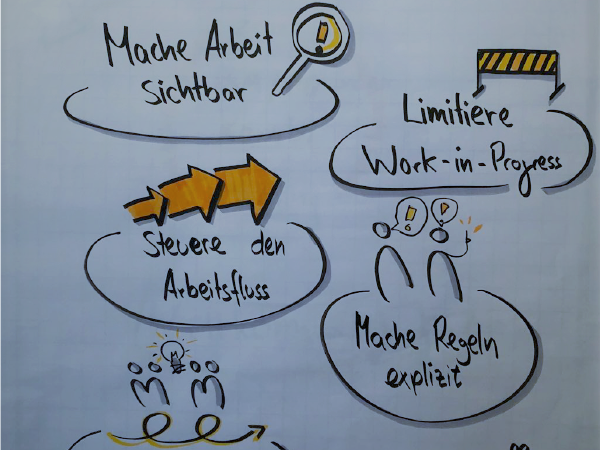 Mache Arbeit
sichtbar
Limitiere
Work-in-Progress
Steuere den
Arbeitsfluss
Mache Regeln
explizit